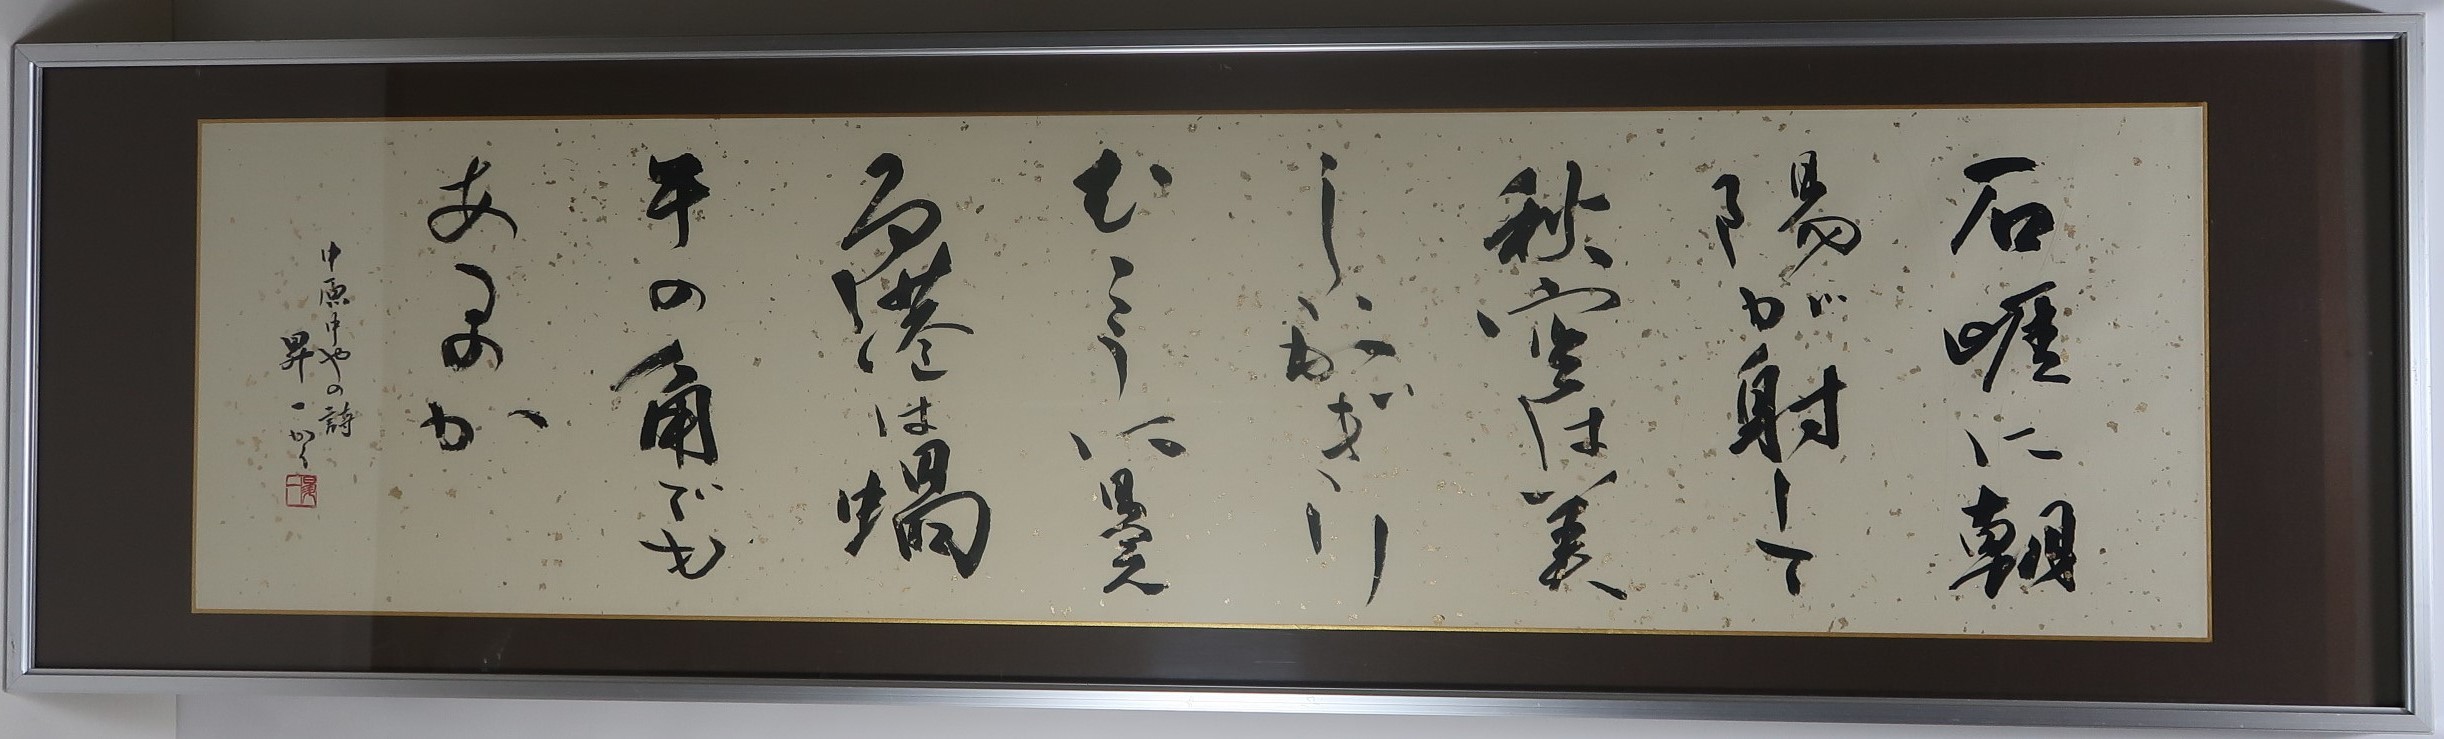 石崕に朝
陽が射して
秋空は美
しいかぎり
むこうに見え
る港は蝸
牛の角でも
あるのか
中原中やの詩
昇一かく